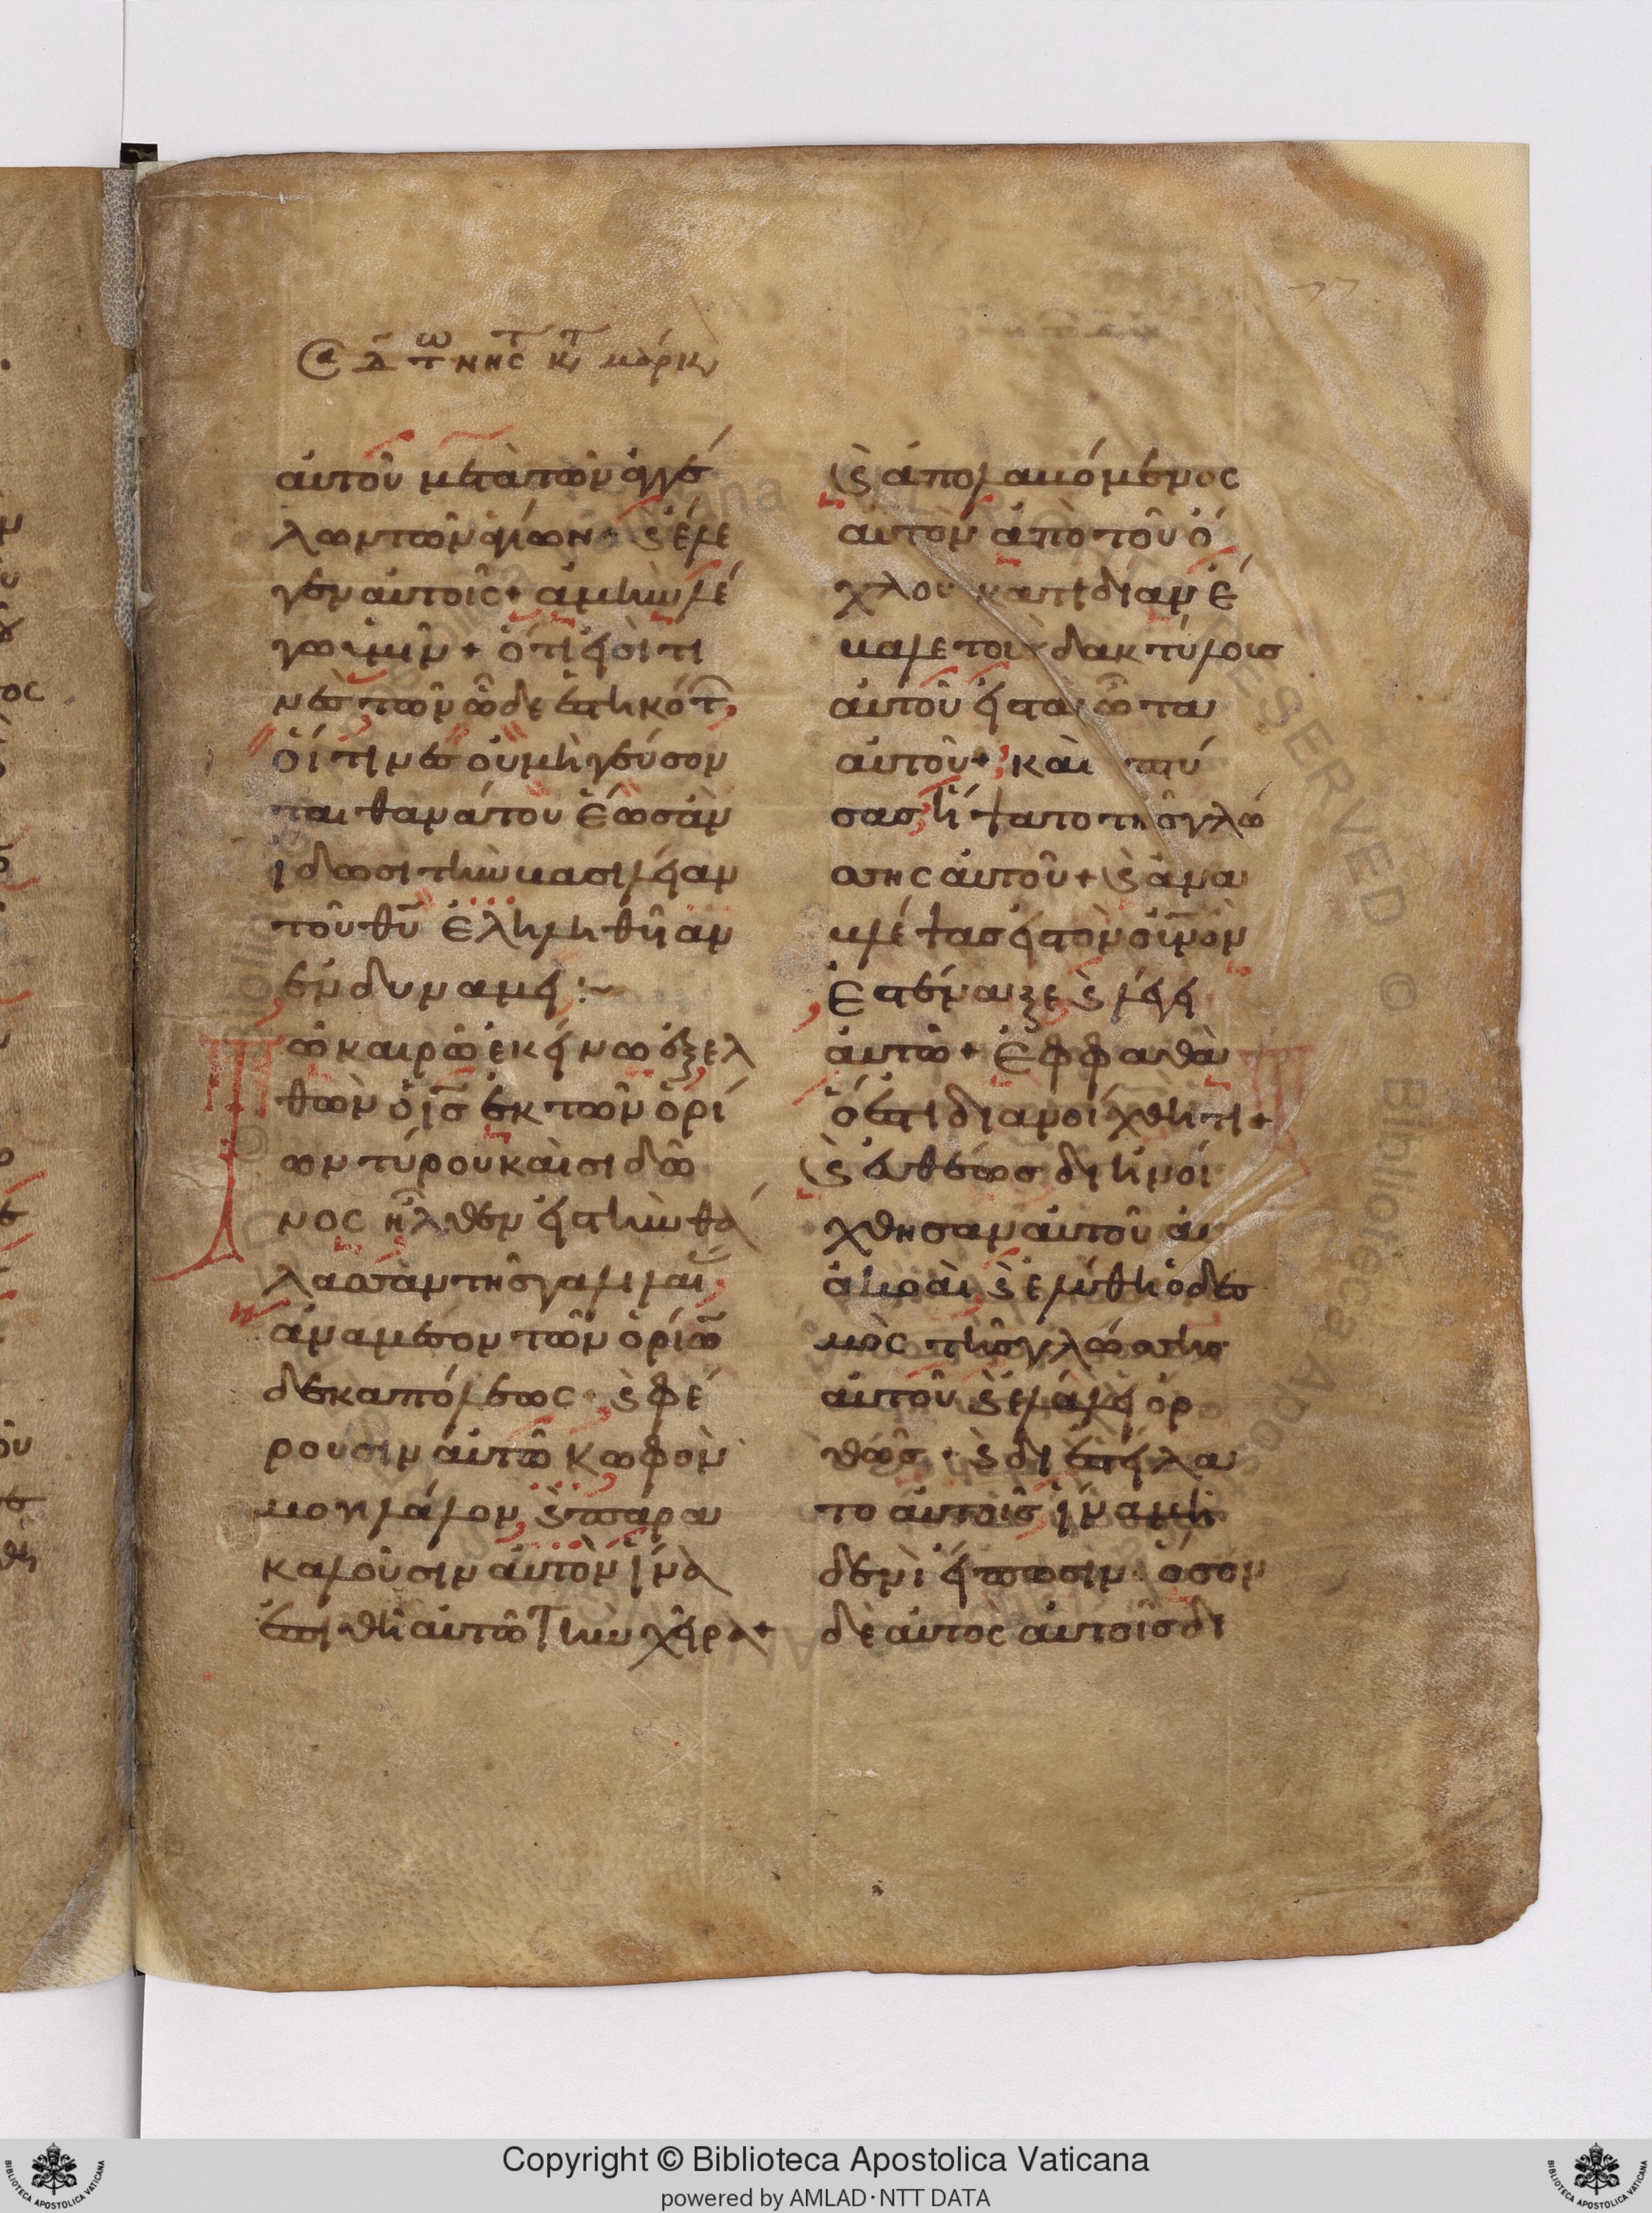 αὐτοῦ μετὰ τῶν ἀγγέ
λων τῶν ἁγίων + ϗ ἔλε
γεν αὐτοῖς + ἀμὴν λέ
γω ὑμῖν + ὅτι εἰσί τι
νες τῶν ὧδε ἑστηκότ
οἵτινες οὐ μὴ γεύσον
ται θανάτου ἕως ἂν
ἴδωσι τὴν βασιλείαν
τοῦ θυ ἐληλυθῆαν
ἐν δυνάμει :~
Τῶ καιρῶ ἐκείνω ἐξελ
θὼν ὁ ις ἐκ τῶν ὁρί
ων τύρου καὶ σιδῶ
νος ἦλθεν εἰς τὴν θά
λασσαν τῆς γαλιλαί
ἀναμέσον τῶν ὁρίω
δεκαπόλεως + ϗ φέ
ρουσιν αὐτῶ κωφὸν
μογιλάλον ϗ παρα
καλοῦσιν αὐτὸν ἵνα
ἐπιθῆ αὐτῶ τὴν χεῖρα +
ϗ ἀπολαβόμενος
αὐτὸν ἀπὸ τοῦ ὄ
χλου κατιδίαν ἔ
βαλε τοὺς δακτύλους
αὐτοῦ εἰς τὰ ὦτα
αὐτοῦ + καὶ πτύ
σας ἥψατο τῆς γλώ
σσης αὐτοῦ + ϗ ἀνα
βλέψας εἰς τὸν οὐνον
ἐστέναξε ϗ λέγει
αὐτῶ + ἐφφαθὰ
ὅ ἐστι διανοίχθητι +
ϗ εὐθέως διηνοί
χθησαν αὐτοῦ αἱ
ἀκοαὶ ϗ ἐλύθη ὁ δεσ
μὸς τῆς γλώσσης
αὐτοῦ ϗ ἐλάλει ὀρ
θῶς + ϗ διεστείλα
το αὐτοῖς ἵνα μη
δενὶ εἴπωσιν ὅσον
δὲ αὐτὸς αὐτοῖς δι
Copyright © Biblioteca Apostolica Vaticana
powered by AMLAD·NTT DATA